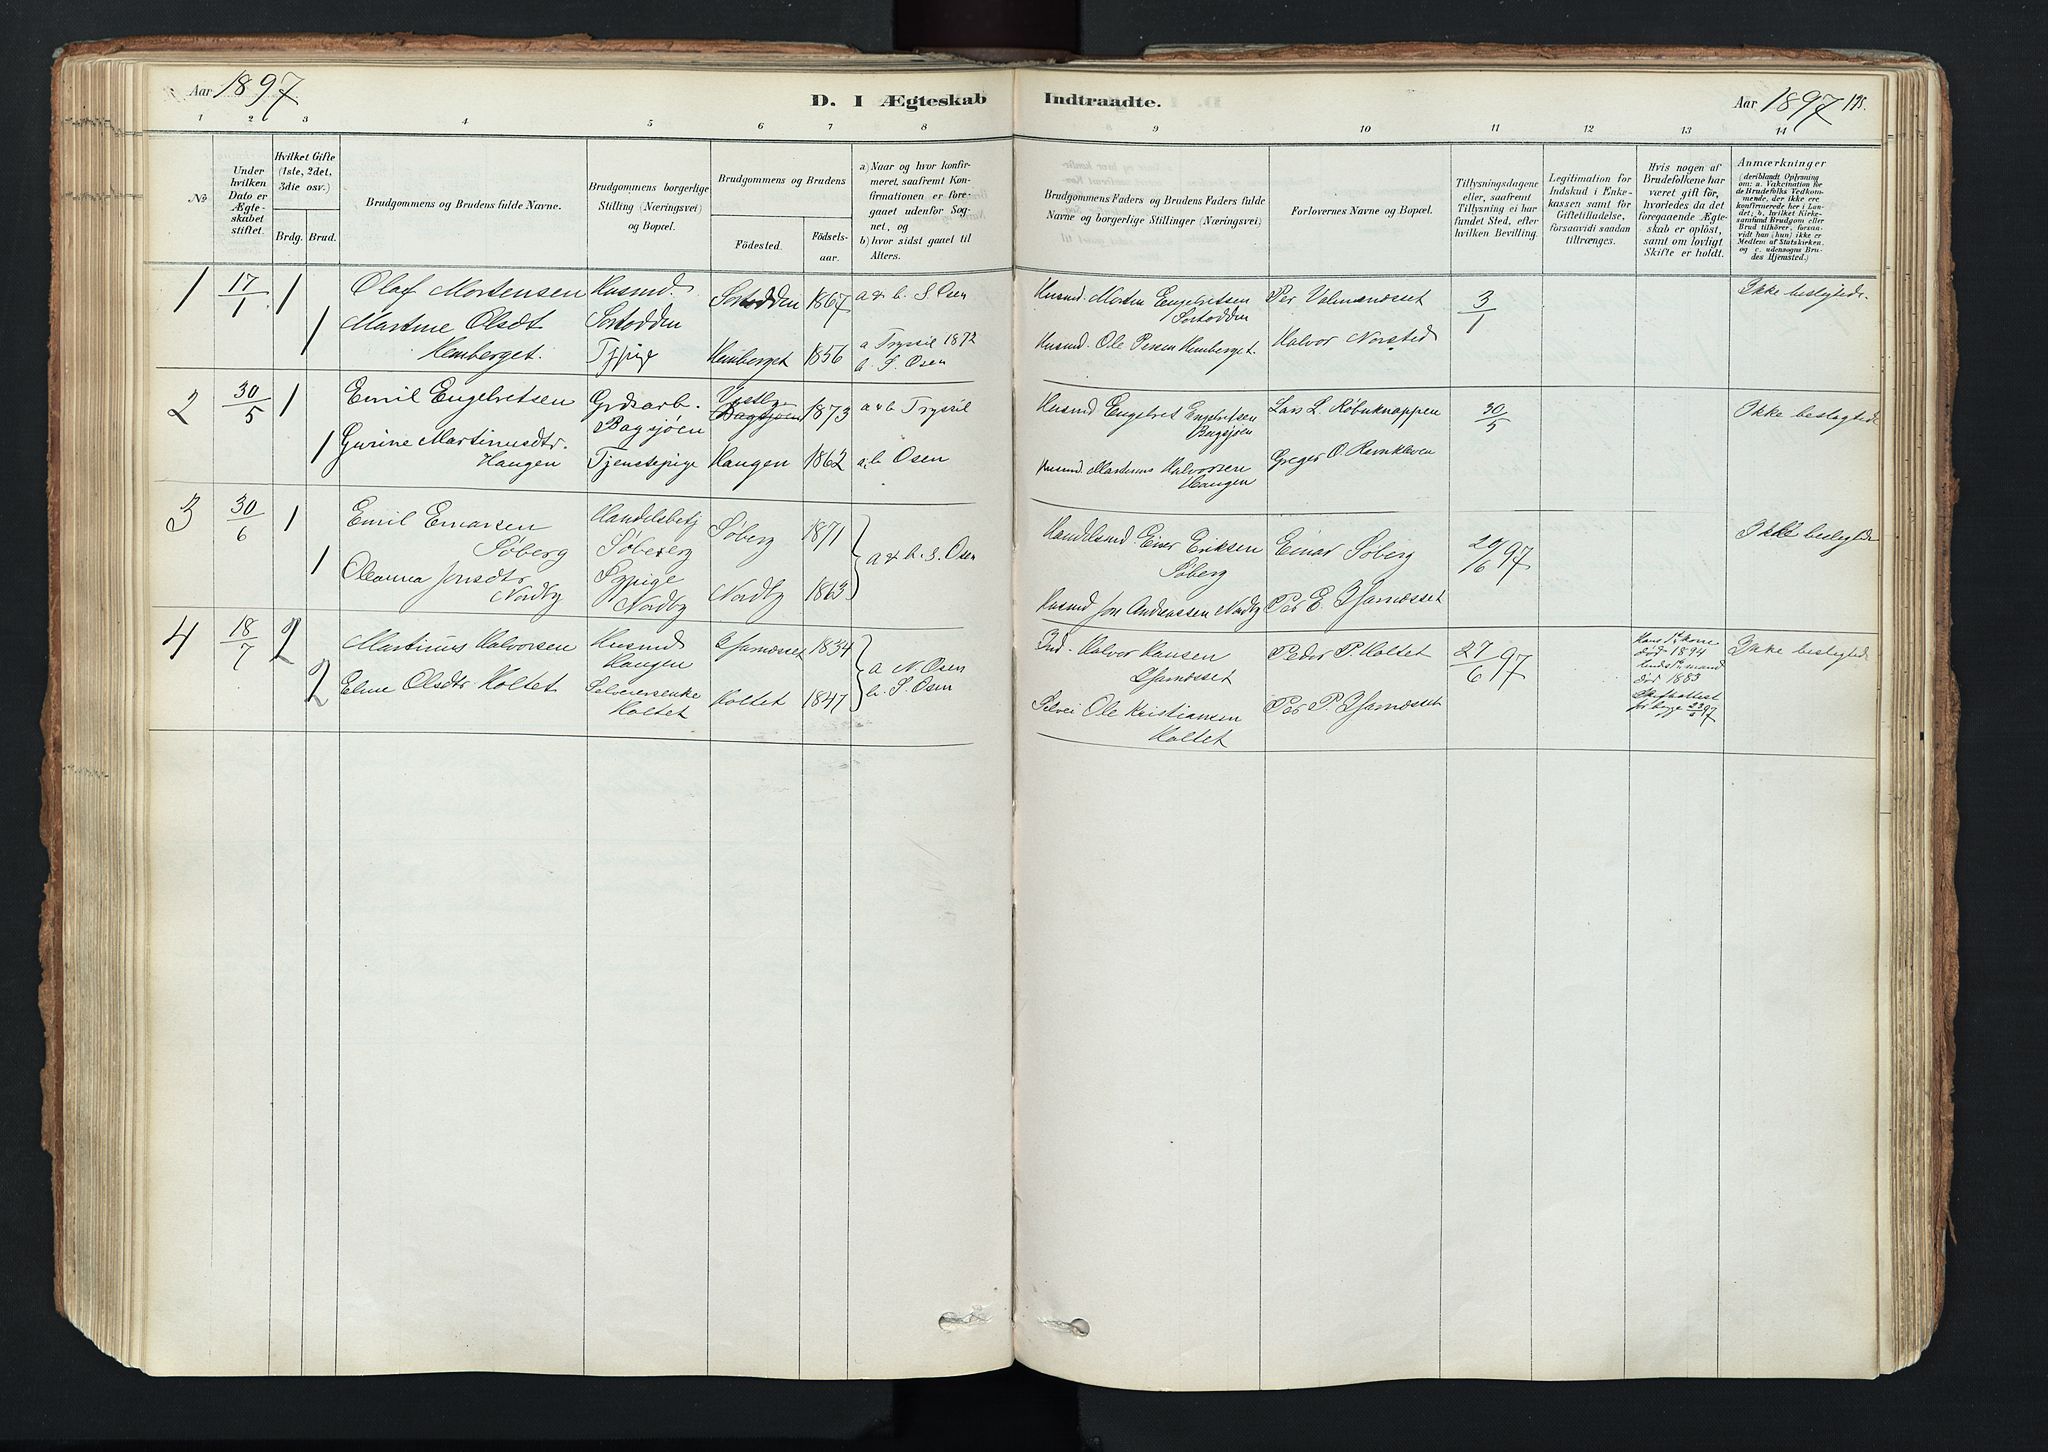 Aar 1897
D. I Ægteskab Indtraadte.
Aar 1897
1 2 3 4 5 6 7 8
9 10 11 12 13 14
No
Under hvilken Dato er Ægte-skabet stiftet.
Hvilket Gifte (1ste, 2det, 3die osv.)
Brdg. Brud.
Brudgommens og Brudens fulde Navne.
Brudgommens borgerlige Stilling (Næringsvei) og Bopæl.
Brudgommens og Brudens
Födested. Födsels-aar.
a) Naar og hvor konfir-meret, saafremt Kon-firmationen er fore-gaaet udenfor Sog-net, og
b) hvor sidst gaaet til Alters.
Brudgommens Faders og Brudens Faders fulde Navne og borgerlige Stillinger (Næringsvei)
Forlovernes Navne og Bopæl.
Tillysningsdagene eller, saafremt Tillysning ei har fundet Sted, efter hvilken Bevilling.
Legitimation for Indskud i Enke-kassen samt for Giftetilladelse, forsaavidt saadan tiltrænges.
Hvis nogen af Brudefolkene har været gift för, hvorledes da det foregaaende Ægte-skab er oplöst, samt om lovligt Skifte er holdt.
Anmærkninger
(deriblandt Oplysning om: a. Vakcination for de Brudefolks Vedkom-mende, der ikke ere konfirmerede her i Lan-det; b. hvilket Kirke-samfund Brudgom eller Brud tilhörer, forsaa-vidt han (hun) ikke er Medlem af Statskirken, og c. udensogns Bru-des Hjemsted.)
1 17/1 1 Olaf Mortensen Husmd. Sortodden 1867 a & b. S. Osen
1 Martine Olsdt Sortodden
Hemberget. Tjpige Hemberget 1856 a Trysil 1872
b. S. Osen
Husmd. Morten Engebretsen Per Valmenesset 3/1 Ikke beslegtede
Sortodden
Husmd. Ole Persen Hemberget. Halvor Norsted
2 30/5 1 Emil Engebretsen Grdsarb. 1873 a & b Trysil
Bagsjøen
1 Gurine Martinusdtr. Tjenestepige Haugen 1862 a,b Osen
Haugen
Husmd Engebret Engebretsen Lars L. Røbuknappen 30/5 Ikke beslægtede
Bagsjøen
Husmd. Martinus Halvorsen Greger O. Ravnkleven
Haugen
3 30/6 1 Emil Einarsen Handelsbetj Søberg 1871 a & b. S. Osen
Søberg
1 Oleanna Jonsdtr Nordby 1863
Nordby Nordby
Handelsmd. Einar Eriksen Einar Søberg 20/6 97 Ikke beslegtede
Søberg
Husmd Jon Andreassen Nordby Per E.
4 18/7 2 Martinus Halvorsen Husmd 1834 a N. Osen
Haugen
2 Eline Olsdtr Holtet Selveierenke Holtet 1847 b. S. Osen
Holtet
Ind. Halvor Hansen Peder P. Holtet 27/6 97 Hans 1ste kone Ikke beslegtede
død 1894
Hendes 1ste mand
død 1883
Selvei Ole Kristiansen Per P. Skifteattest
Holtet for begge 23/6 97